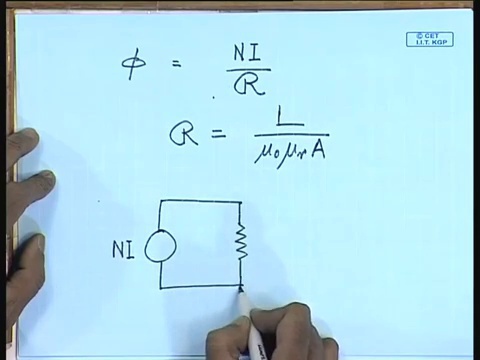 © CET
I.I.T. KGP
ϕ = NI / ℛ
ℛ = L / μ₀μᵣA
NI